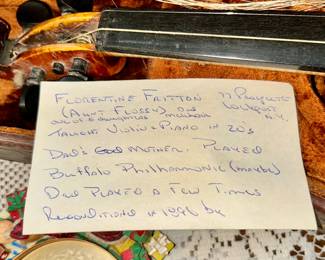 FLORENTINE FRITTON
(AUNT FLOSSY) OUR
LOCKPORT
N.Y.
TAUGHT VIOLIN & PIANO IN 20s
DAD'S GOD MOTHER. PLAYED
BUFFALO PHILHARMONIC (MAYBE)
DAD PLAYED A FEW TIMES
RECONDITIONED IN 1996 by